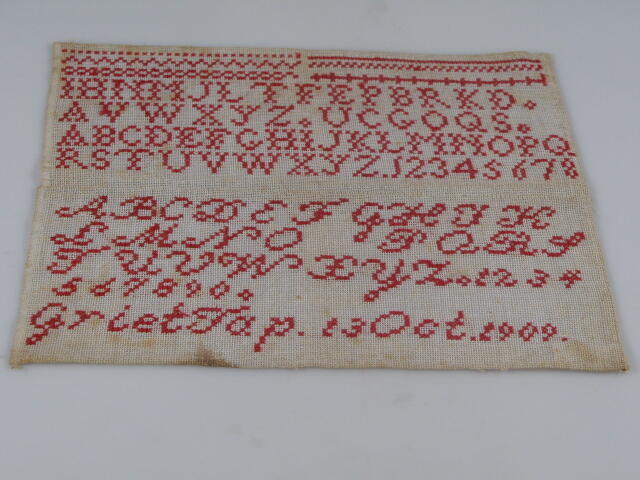 I H N M J L T F E P B R K D .
A V W X Y Z . U C G O Q S .
A B C D E F G H I J K L M N O P Q
R S T U V W X Y Z . 1 2 3 4 5 6 7 8
A B C D E F G H I K
L M N O P Q R S
T U V W X Y Z . 1 2 3 4
5 6 7 8 9 0 .
Griet Tap. 13 Oct. 1909.